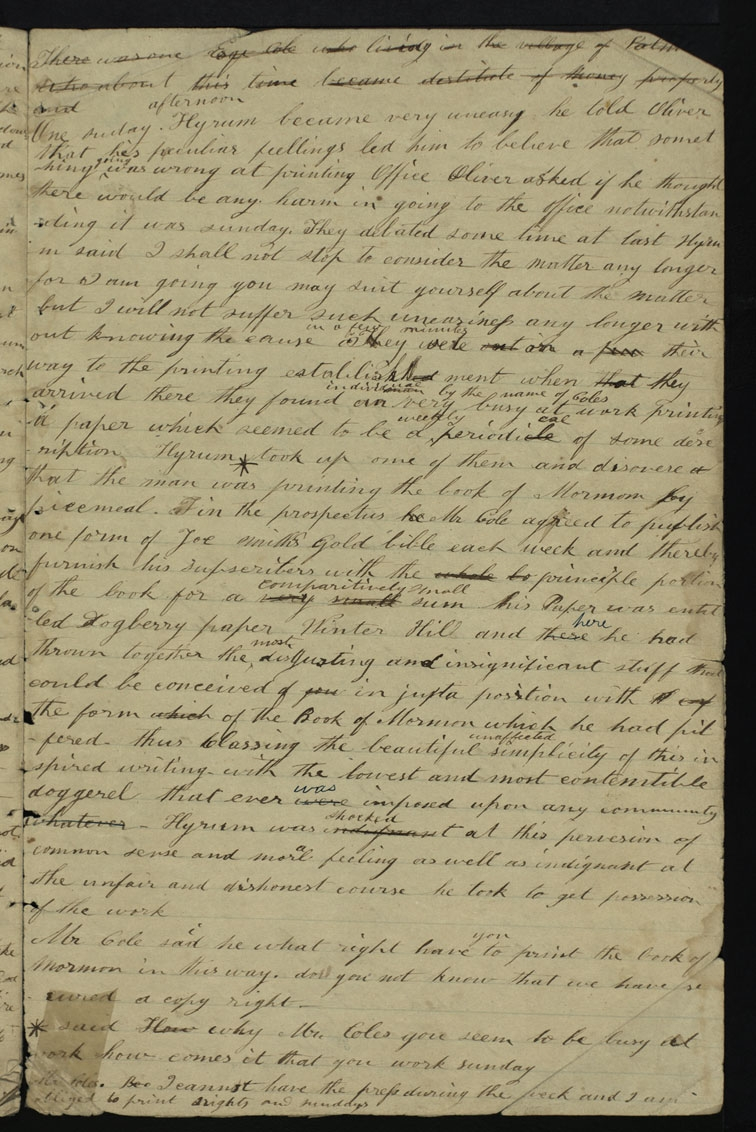 There was one Esqr Cole who living in the village of Palm
who about this time became destitute of money property
and afternoon
One sunday. Hyrum became very uneasy he told Oliver
that his peculiar feelings led him to believe that somet
hing going was wrong at printing Office Oliver asked if he thought
there would be any harm in going to the office notwithstan
-ding it was sunday. They debated some time at last Hyru
m said I shall not stop to consider the matter any longer
for I am going you may suit yourself about the matter
but I will not suffer such uneasiness any longer with
out knowing the cause in a few minutes They were out on a few their
way to the printing establishment when that they
arrived there they found an individual by the name of Coles very busy at work printing
a paper which seemed to be a weekly periodicle cal of some desc
ription Hyrum * took up one of them and discovered
that the man was printing the book of Mormon by
piecemeal. In the prospectus he Mr Cole agreed to publish
one form of Joe smith's Gold bible each week and thereby
furnish his supscribers with the whole bo principle portion
of the book for a very small comparitively small sum his Paper was entit
-led Dogberry paper Winter Hill and these here he had
thrown together the most disgusting and insignificant stuff that
could be conceived of in juxta position with
the form which of the Book of Mormon which he had pil
-fered- thus Classing the beautiful unaffected simplicity of this in
spired writing with the lowest and most contemtible
doggerel that ever were was imposed upon any community
whatever - Hyrum was indignant shocked at this perversion of
common sense and moral feeling as well as indignant at
the unfair and dishonest course he took to get possession
of the work
Mr Cole said he what right have you to print the book of
Mormon in this way. do you not know that we have se
cured a copy right-
* said How why Mr. Coles you seem to be busy at
work how comes it that you work sunday
Mr Coles. I cannot have the press during the week and I am
obliged to print nights and sundays